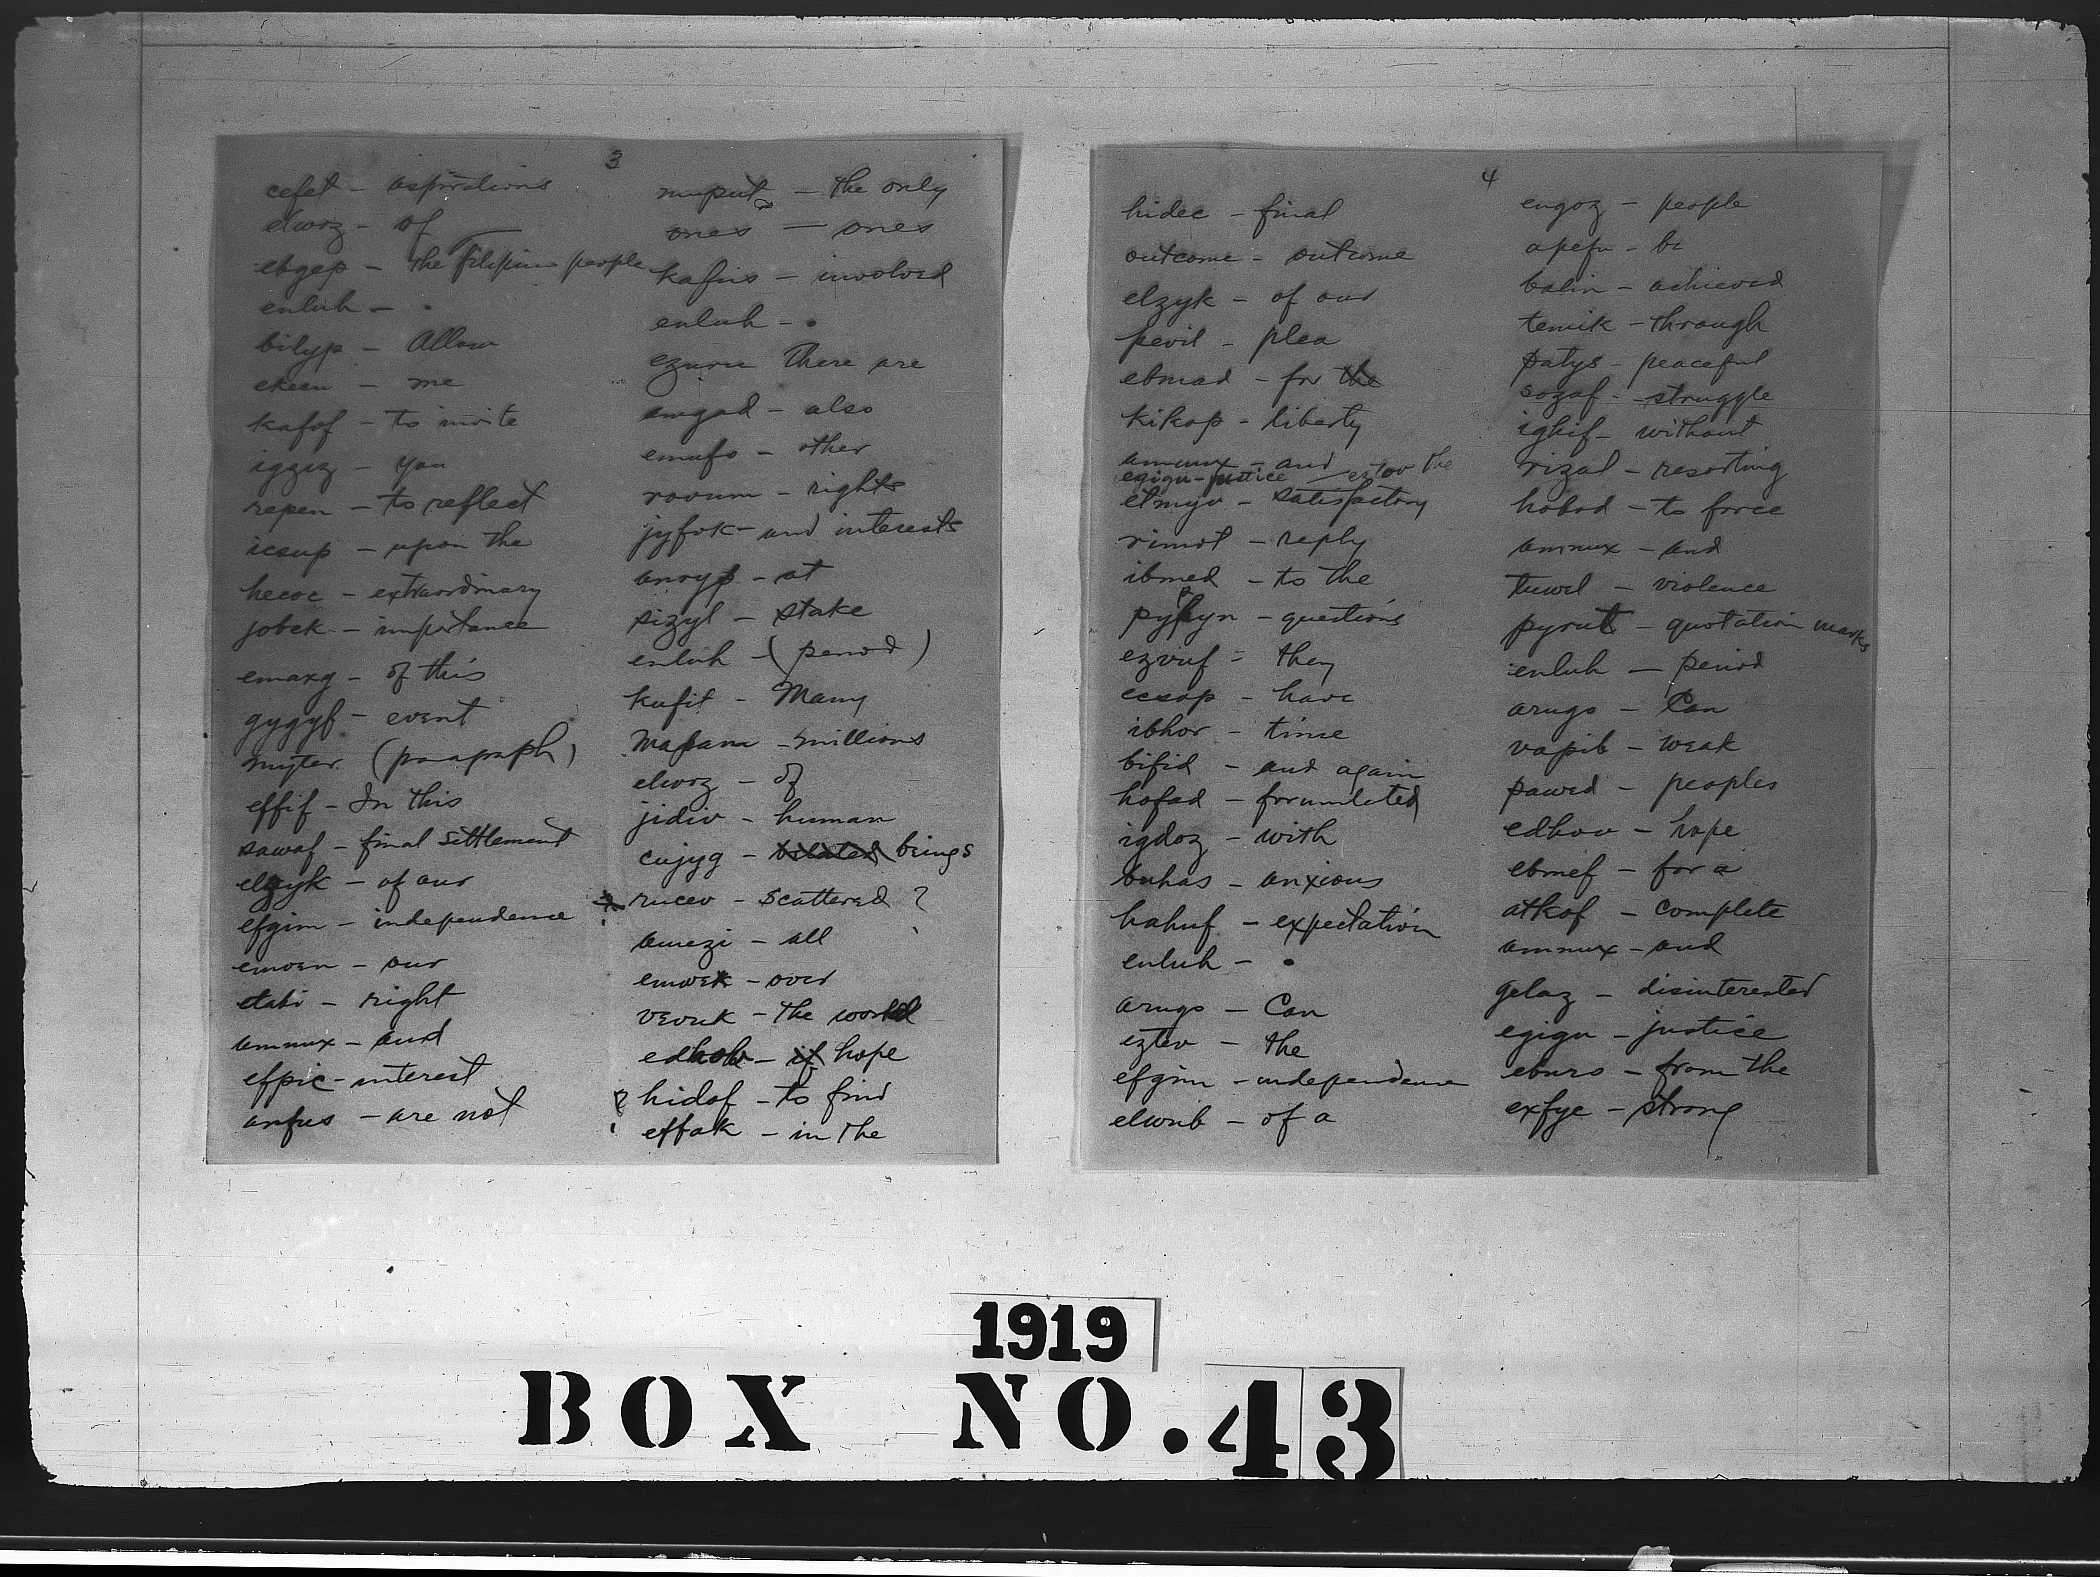 3
cefet - aspirations
elwoz - of
ebgep - the filipino people
enluh - .
bilyp - Allow
ekeen - me
kafof - to invite
igziz - you
repen - to reflect
icsup - upon the
hecoc - extraordinary
jobek - importance
emaxg - of this
gygyf - event
myter (paragraph)
effif - In this
sawaf - final settlement
elzyk - of our
efgim - independence
emoen - our
etabi - right
amnux - and
efpic - interest
anfus - are not
muput - the only
ones - ones
kafus - involved
enluh - .
ezuru there are
amgad - also
emufo - other
rovum - rights
jyfok - and interests
anoyp - at
sizyl - stake
enluh - (period)
kufit - Many
Mapam - millions
elwoz - of
jidiv - human
cujyg - beings
rucev - scattered ?
amezi - all
emwek - over
vevuk - the world
edhov - if hope
? hidof - to find
effak - in the
4
hidec - final
outcome - outcome
elzyk - of our
pevil - plea
ebmad - for the
kikop - liberty
amnux - and
egigu - justice - eztov the
etmyo - satisfactory
rimot - reply
ibmed - to the
pyfyn - questions
ezvuf - they
ecsop - have
ibhor - time
bifid - and again
hofad - formulated
igdoz - with
buhas - anxious
hahuf - expectation
enluh - .
arugo - Can
eztev - the
efgim - independence
elwub - of a
engoz - people
apefu - be
balin - achieved
temik - through
patys - peaceful
sozaf - struggle
ighif - without
rizal - resorting
hobod - to force
amnux - and
tuwel - violence
pyrut - quotation marks
enluh - period
arugo - Can
vapib - weak
pawed - peoples
edhov - hope
ebmef - for a
atkof - complete
amnux - and
gelaz - disinterested
egigu - justice
eburo - from the
exfye - strong
1919
BOX NO. 43